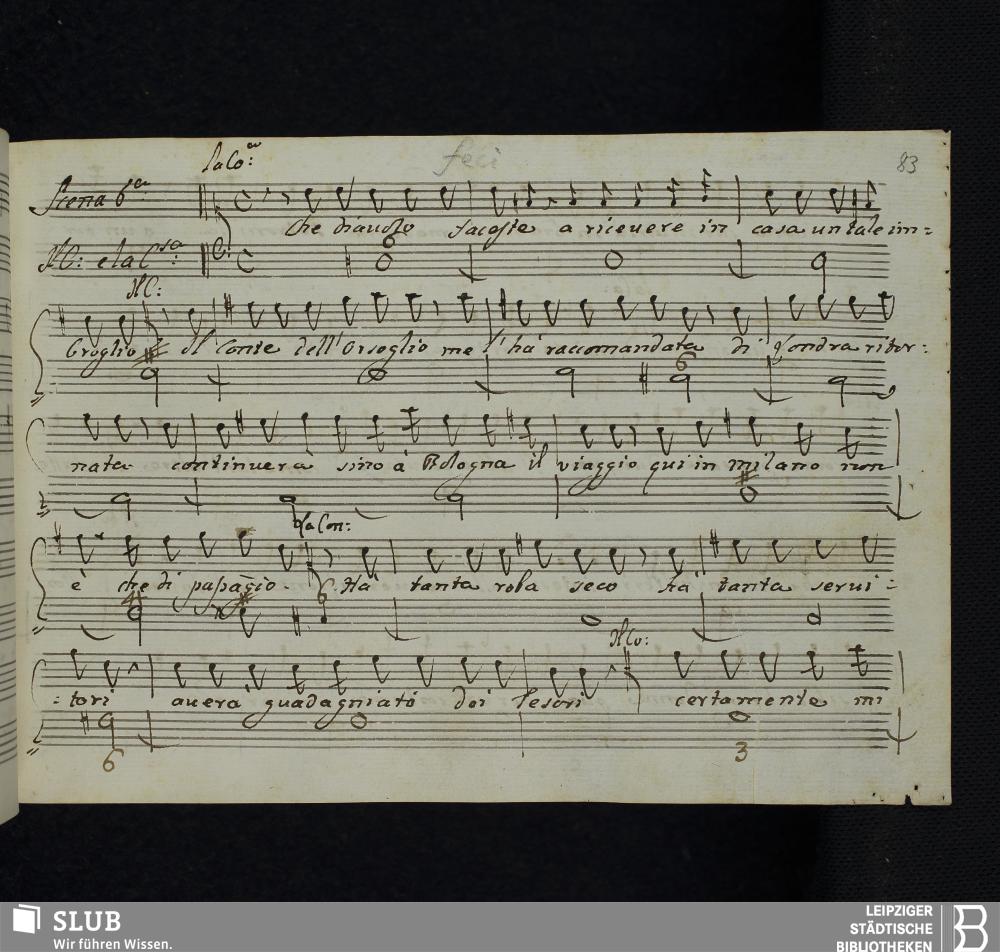 la Co:
feci
83
Scena 6a
che diauolo faceste a riceuere in casa un tale im=
Il C: e la Csa:
6
Il C:
broglio Il Conte dell'Orsoglio me l'hà raccomandata di Londra ritor:
6
nata continuerà sino à Bologna il viaggio qui in milano non
La Con:
è che di passagio. Hà tanta roba seco hà tanta serui=
4 6
Il Co:
=tori auerà guadagniato dei Tesori certamente mi
6 3
SLUB
Wir führen Wissen.
LEIPZIGER
STÄDTISCHE
BIBLIOTHEKEN